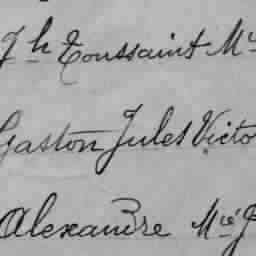 Jh Toussaint Mie
Gaston Jules Victo
Alexandre Mcé J